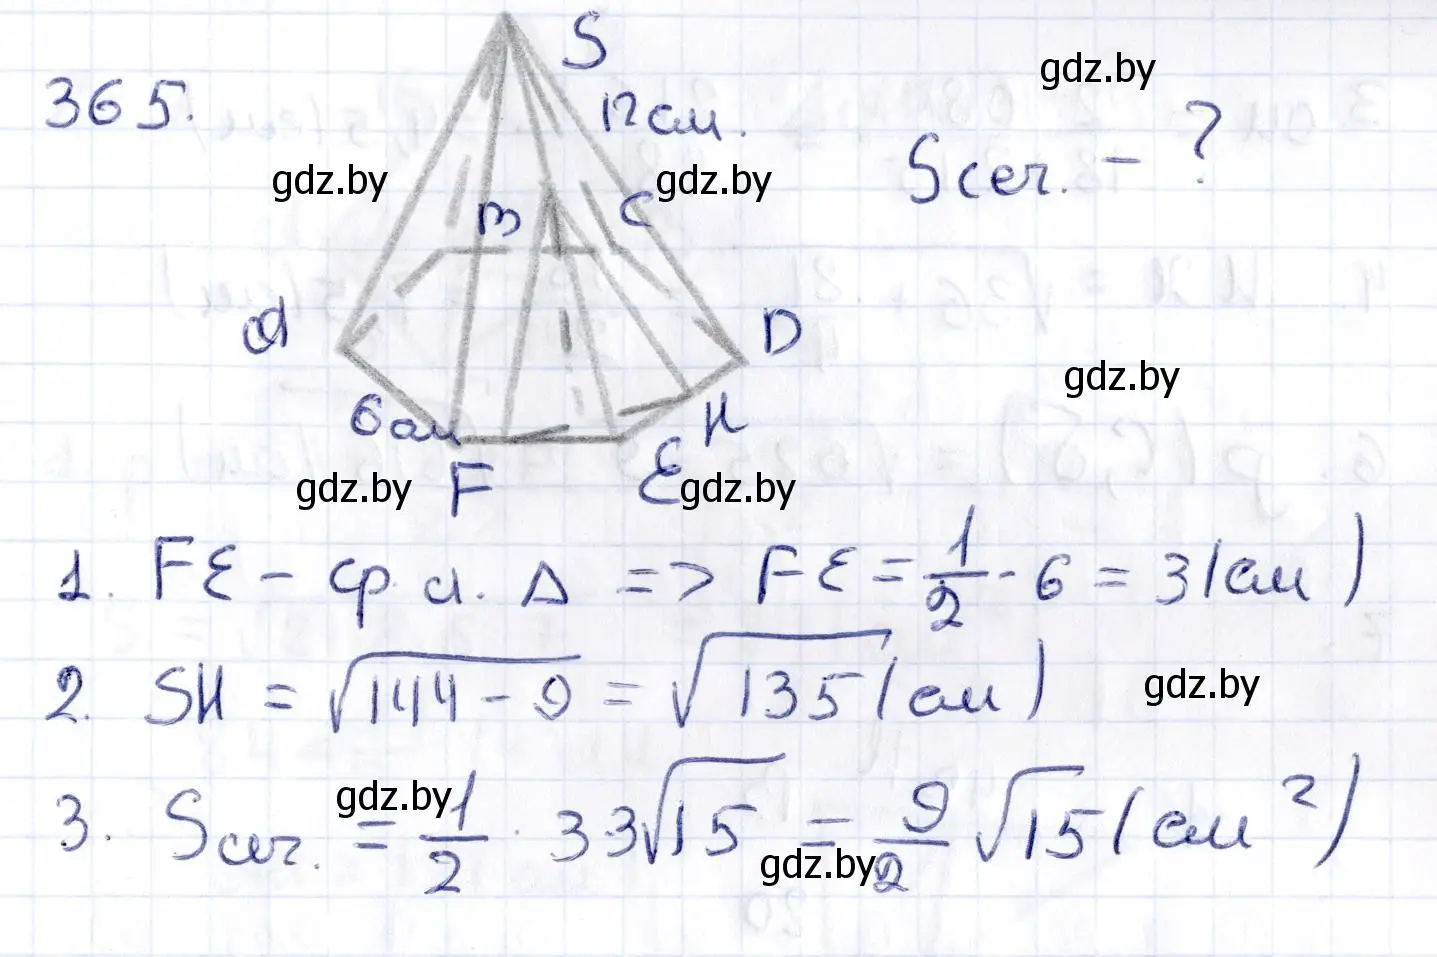 365.
S
12 см.
gdz.by
Sсеч. - ?
gdz.by
gdz.by
B
C
A
D
gdz.by
6 см
H
F
E
gdz.by
gdz.by
1. FE - ср. л. Δ => FE = 1/2 · 6 = 3 (см)
2. SH = √144 - 9 = √135 (см)
gdz.by
3. Sсеч. = 1/2 · 3 3√15 = 9/2 √15 (см²)
gdz.by
gdz.by